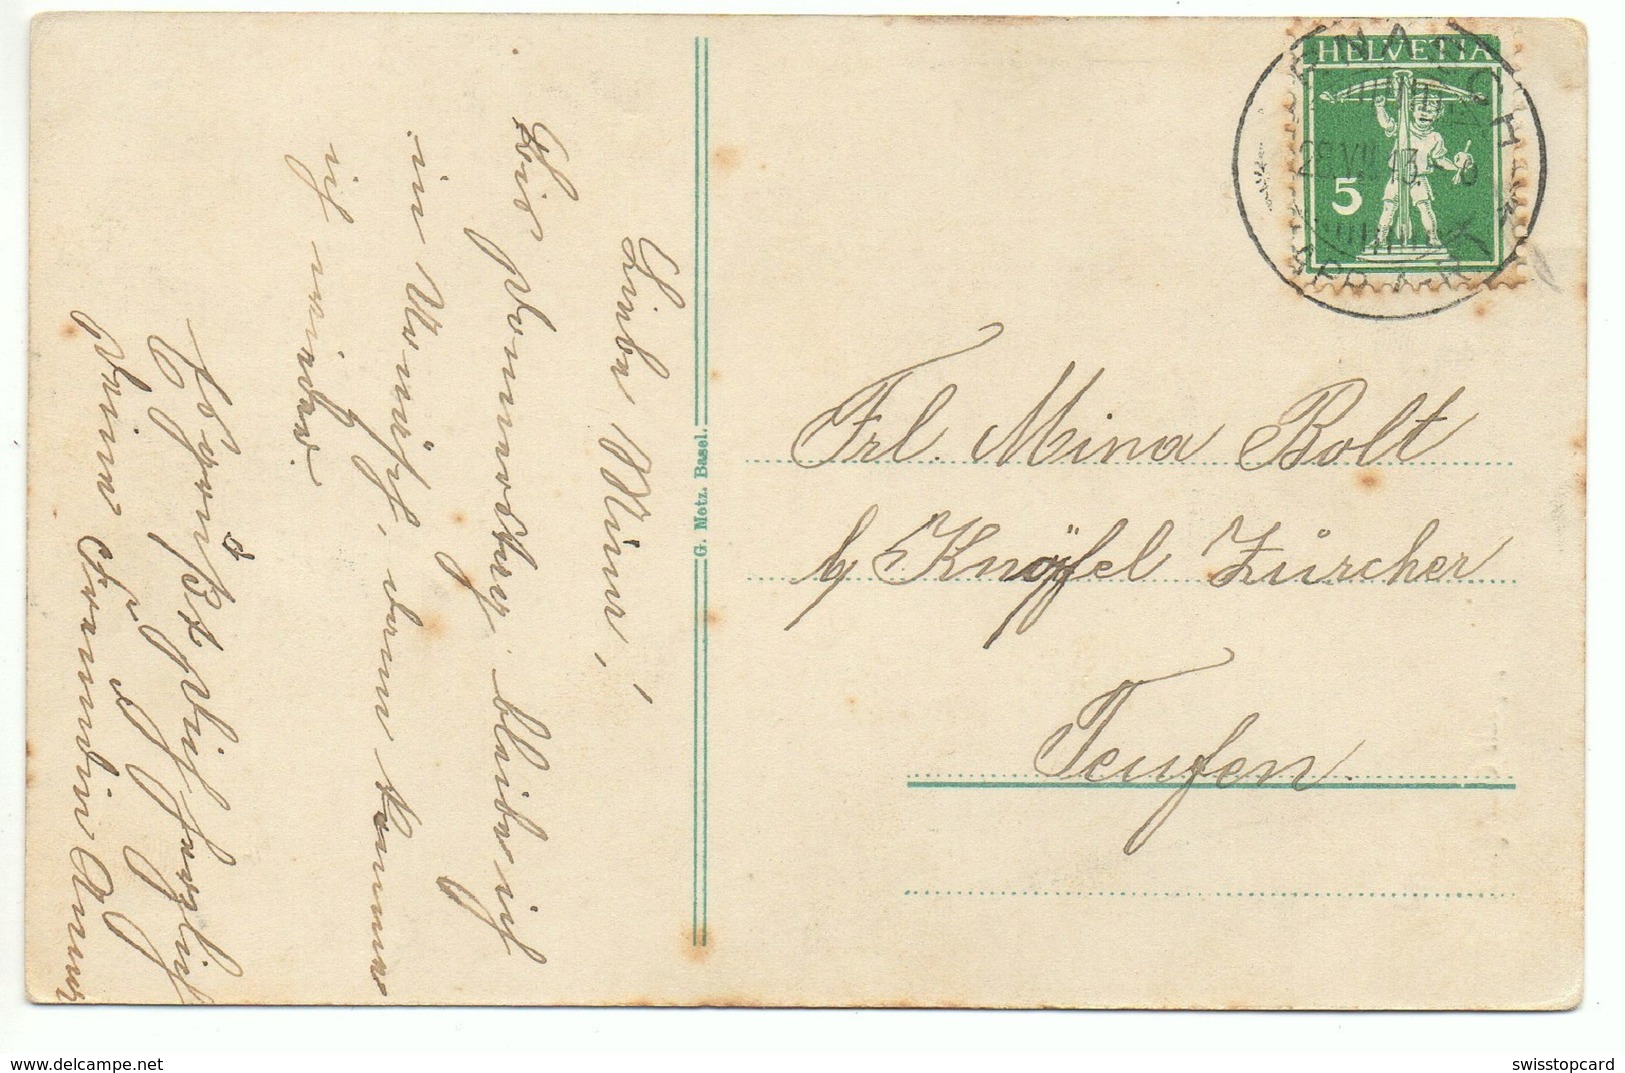 Liebe Mina,
Bis Donnerstag bleibe ich
in Urnäsch, dann komme
ich wieder.
Es grüßt Dich herzlich
Deine Freundin Anna
G. Metz. Basel.
HELVETIA
5
URNÄSCH
28.VII.13.
Frl. Mina Bolt
b/ Knöpfel Zürcher
Teufen.
swisstopcard
www.delcampe.net